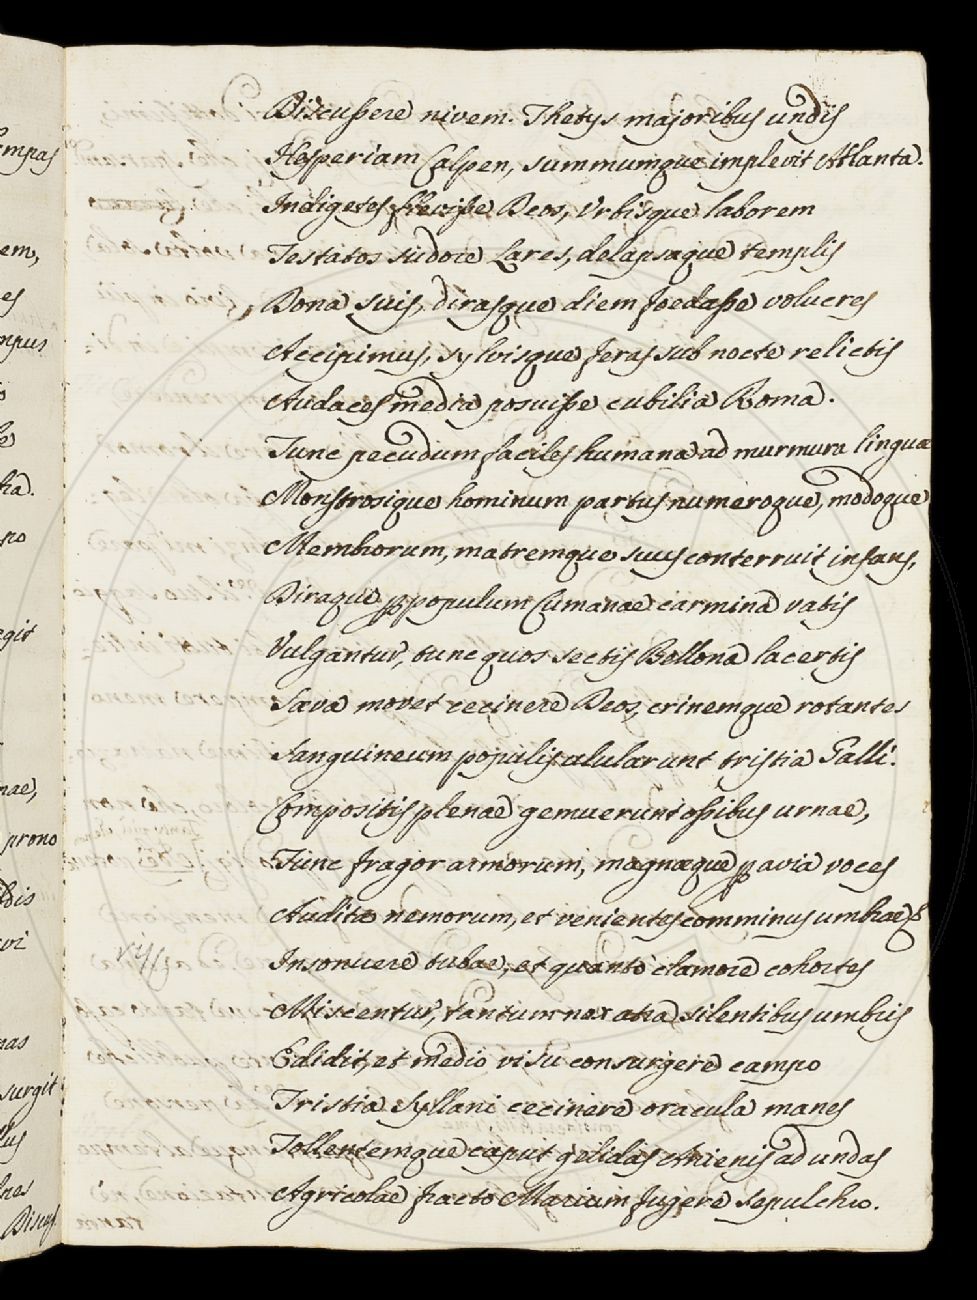 Discussere nivem. Thetys majoribus undis
Hesperiam Calpen, summumque implevit Atlanta.
Indigetes flevisse Deos, Urbisque laborem
Testatos sudore Lares, delapsaque templis
Dona suis, dirasque diem foedasse volucres
Accipimus, sylvisque feras sub nocte relictis
Audaces media posuisse cubilia Roma.
Tunc pecudum faciles humana ad murmura linguae
Monstrosique hominum partus numeroque, modoque
Membrorum, matremque suus conterruit infans,
Diraque p populum Cumanae carmina vatis
Vulgantur, tunc quos sectis Bellona lacertis
Saeva movet cecinere Deos, crinemque rotantes
Sanguineum populis ulularunt tristia Galli.
Compositis plenae gemuerunt ossibus urnae,
Tunc fragor armorum, magnaeque p avia voces
Auditae nemorum, et venientes comminus umbrae
Insonuere tubae, et quanto clamore cohortes
Miscentur, tantum nox atra silentibus umbris
Edidit, et medio visu consurgere campo
Tristia Syllani cecinere oracula manes
Tollentemque caput gelidas Anienis ad undas
Agricolae fracto Marium fugere sepulchro.
em,
es
mpus
po
egit
nae,
prono
surgit